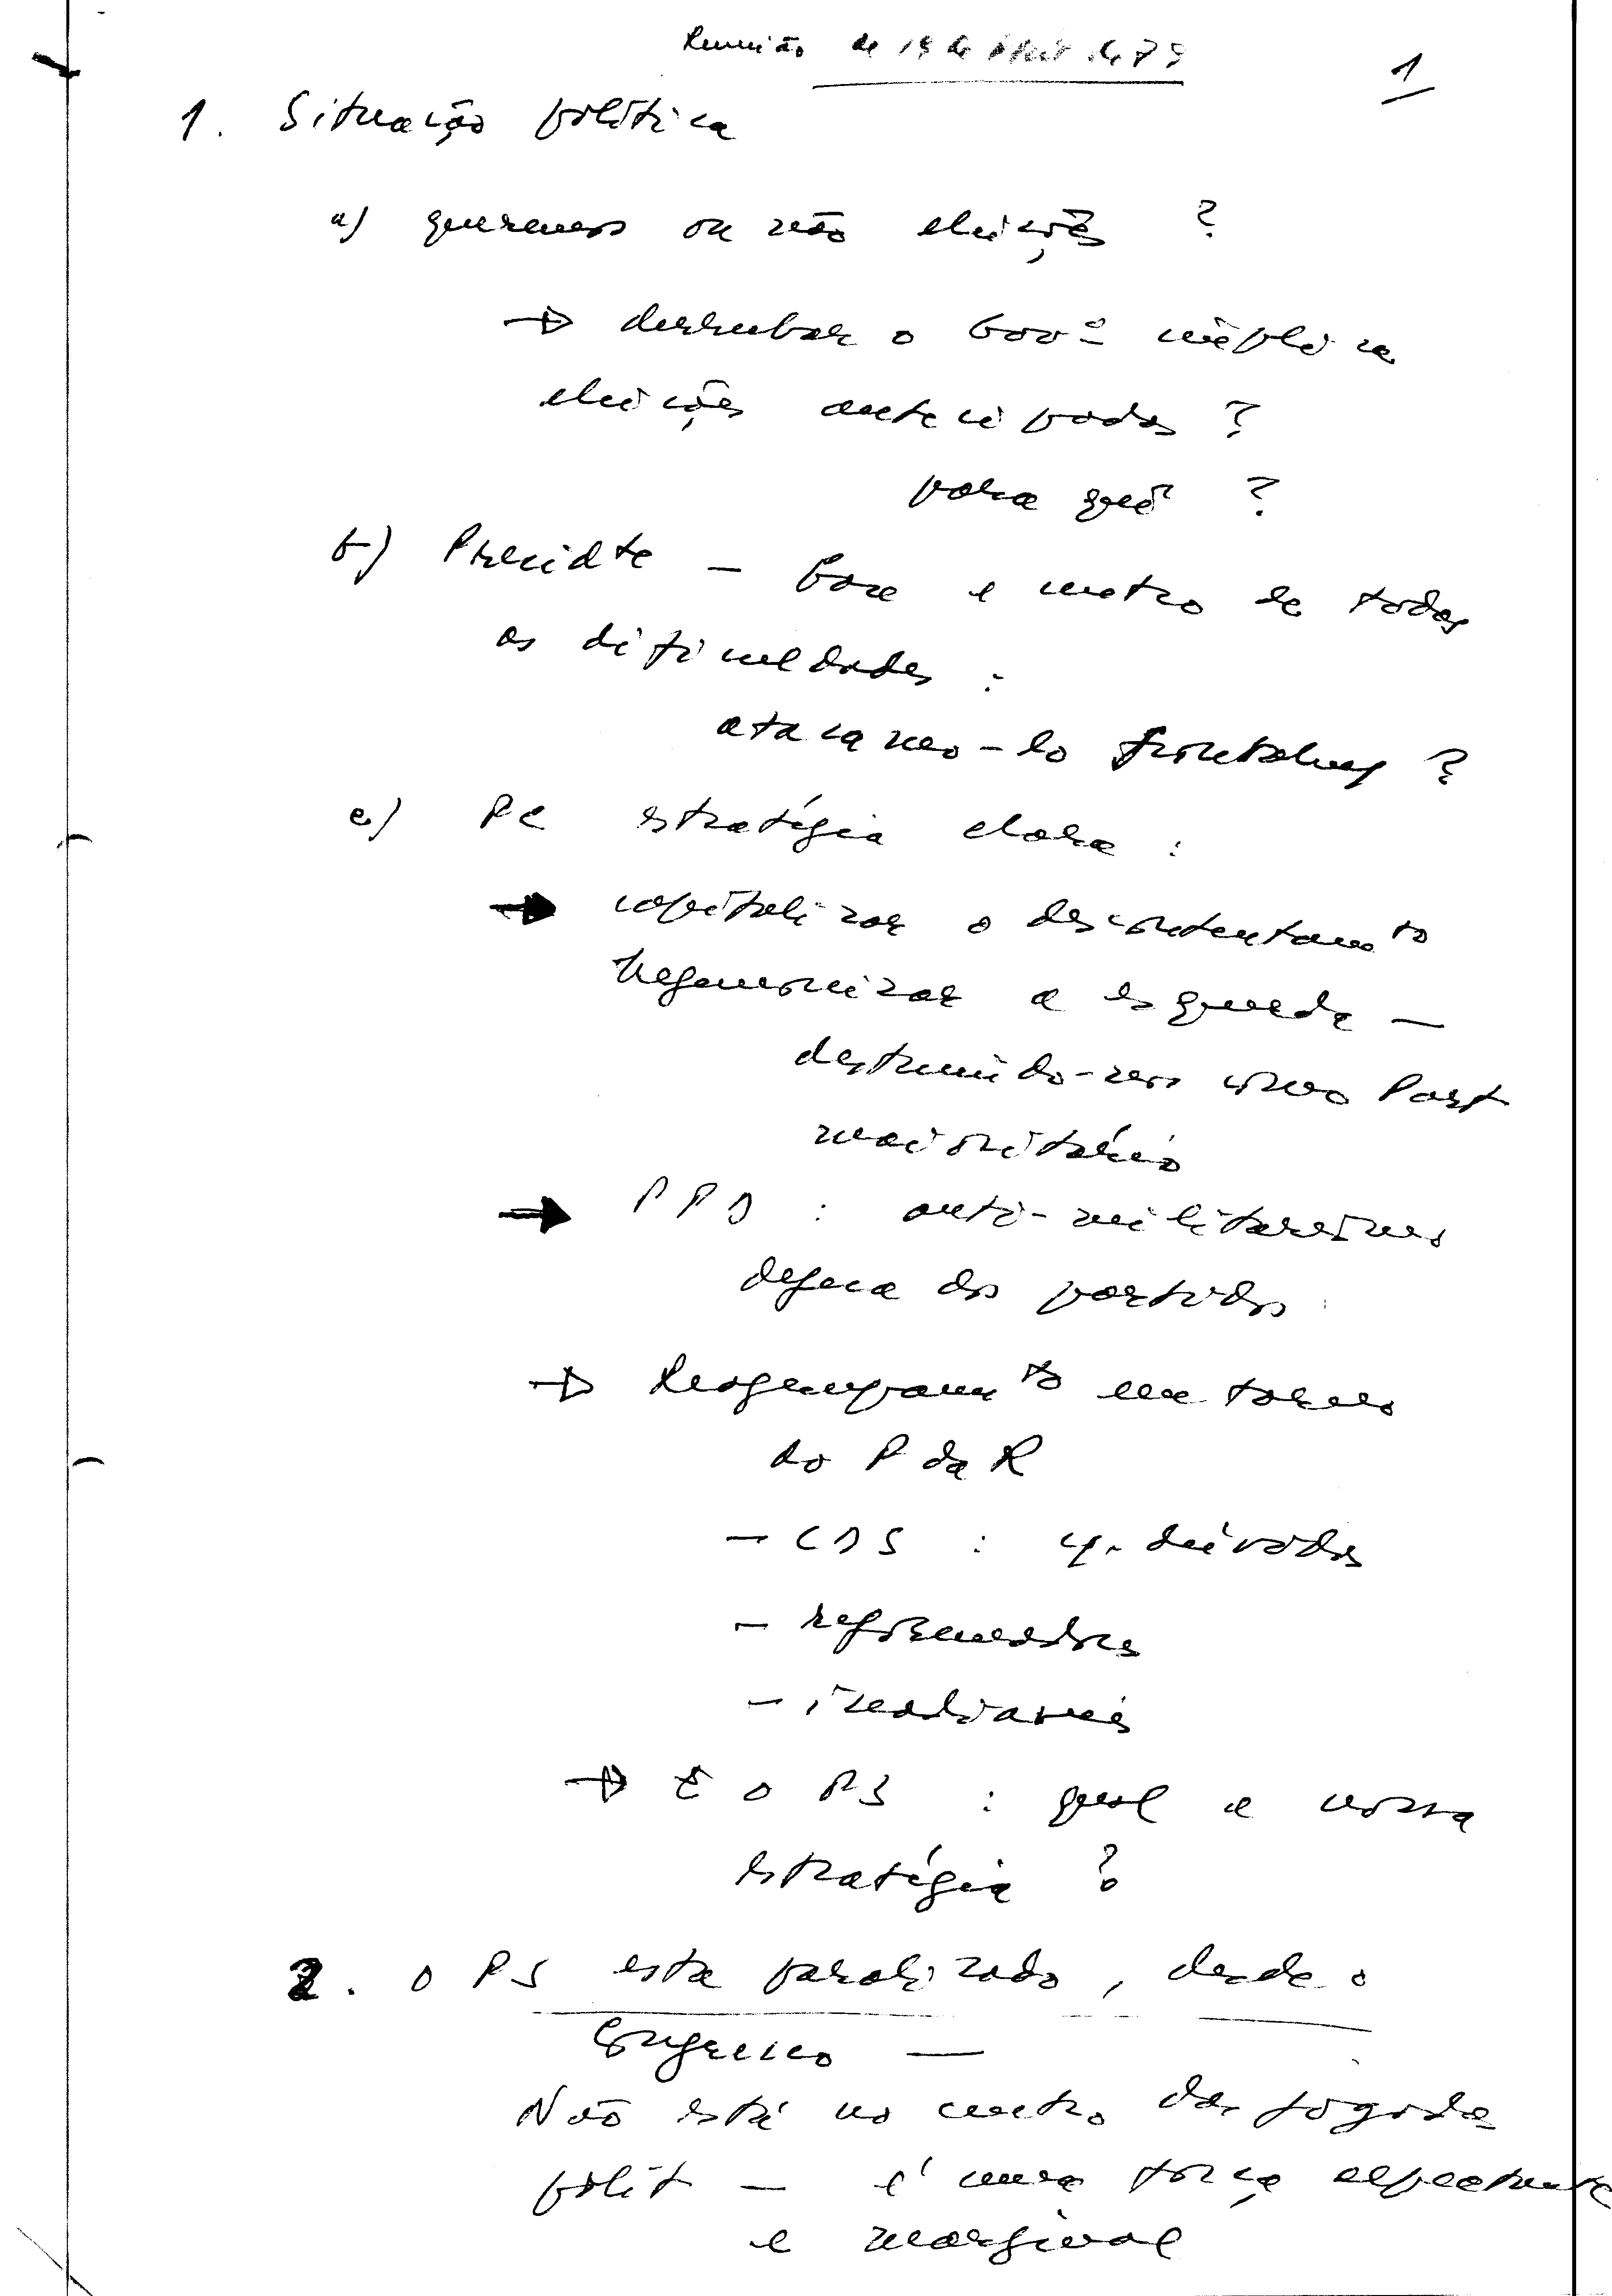 Reunião de 19 de Abril de 79
1
1. Situação política
a) queremos ou não eleições ?
→ derrubar o Govº implica
eleições antecipadas ?
para quê ?
b) Presidte - base e centro de todas
as dificuldades :
atacamo-lo frontalmte ?
c) PC estratégia clara :
→ capitalizar o descontentamto
hegemonizar a esquerda —
destruindo-nos como Part
maioritário
→ PPD : anti-militarismo
defesa dos partidos
→ Reagrupamto em torno
do P da R
- CDS : c/. dúvidas
- reformadores
- inadiáveis
→ E o PS : qual a nossa
estratégia ?
2. O PS esta paralizado, desde o
Congresso —
Não está no centro das jogadas
polít — é uma força expectante
e marginal